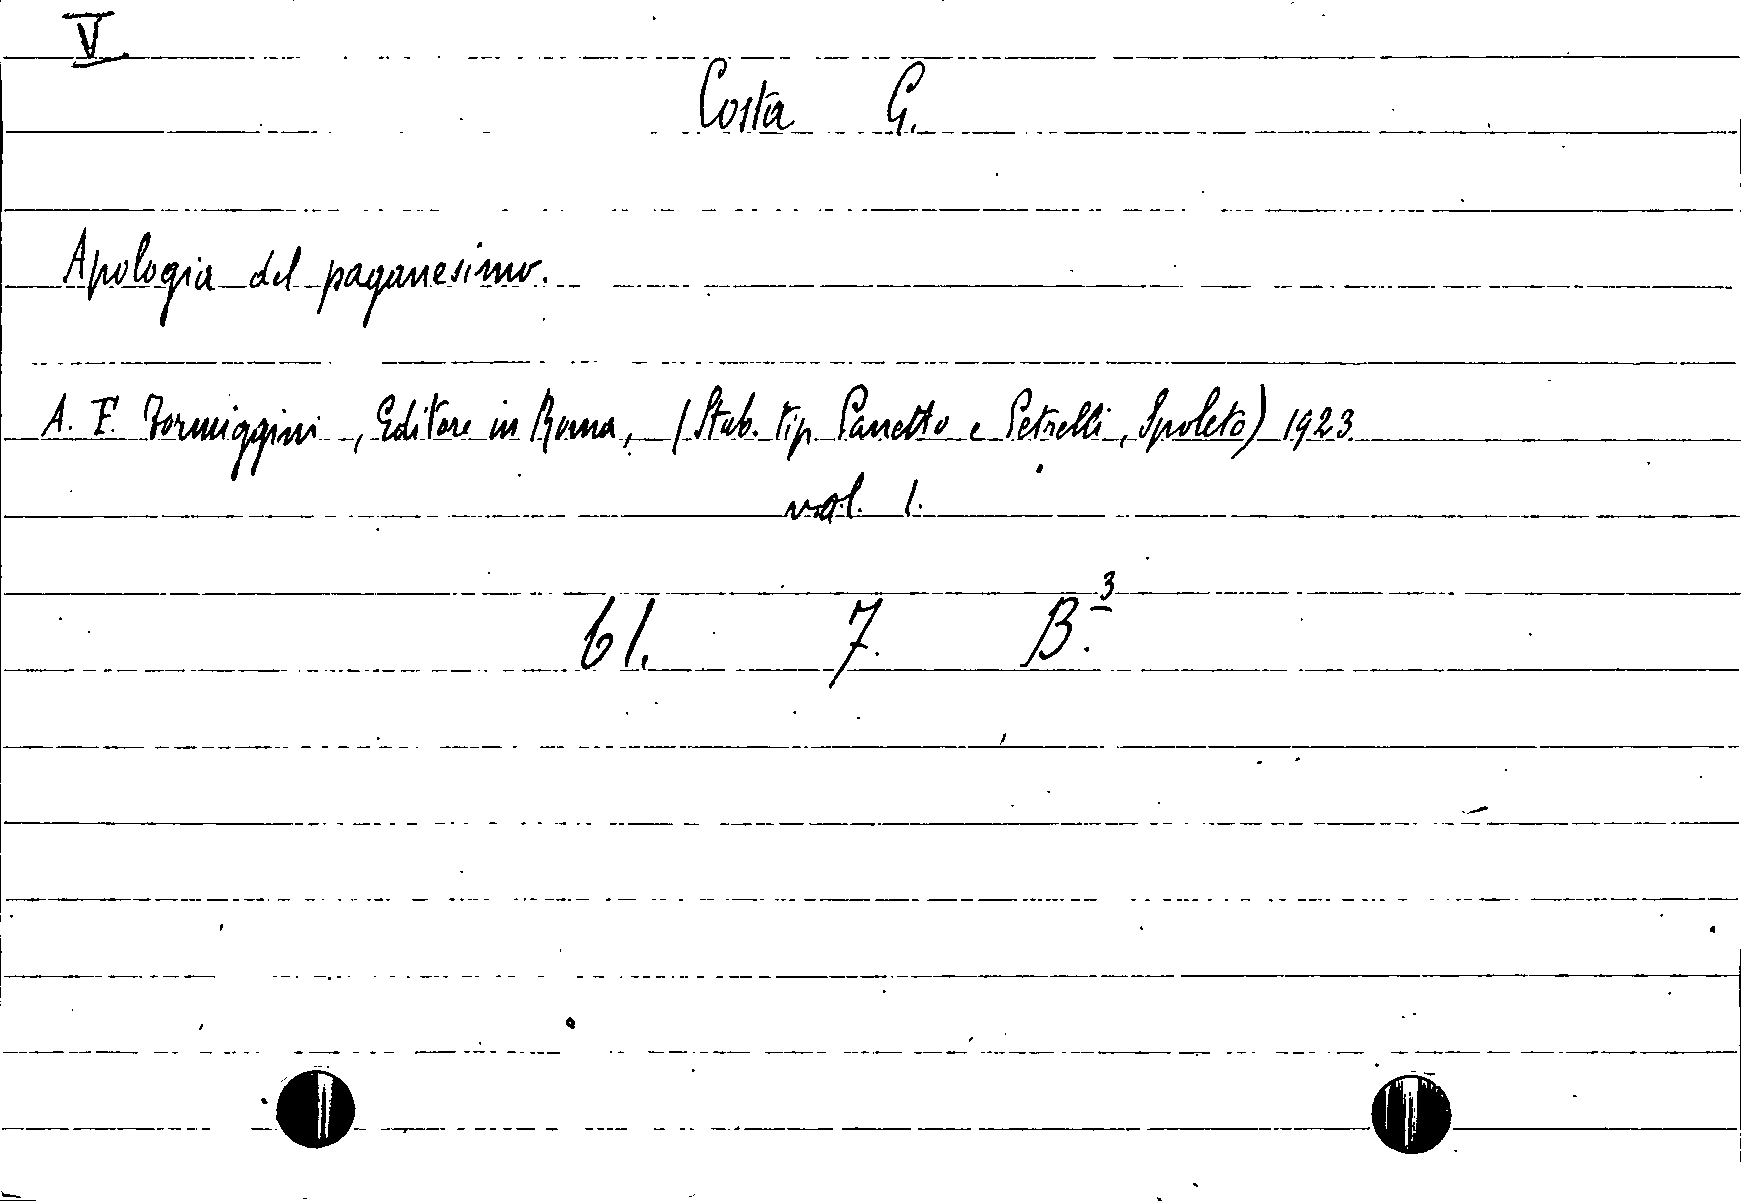 V
Costa G.
Apologia del paganesimo.
A. F. Formiggini, Editore in Roma, (Stab. tip. Panetto e Petrelli, Spoleto) 1923.
vol. 1.
61. 7. B.3